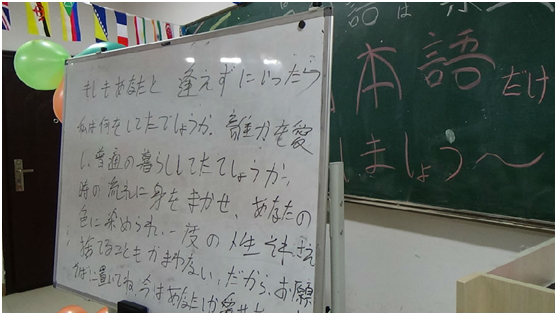 もしもあなたと 逢えずにいったら
私は何をしてたでしょうか、誰かを愛
し、普通の暮らししてたでしょうか、
時の流れに身をまかせ、あなたの
色に染められ、一度の人生それさえ
捨てることもかまわない、だから、お願
ばに置いてね、今はあなたしか愛せ
本語だけ
しましょう〜